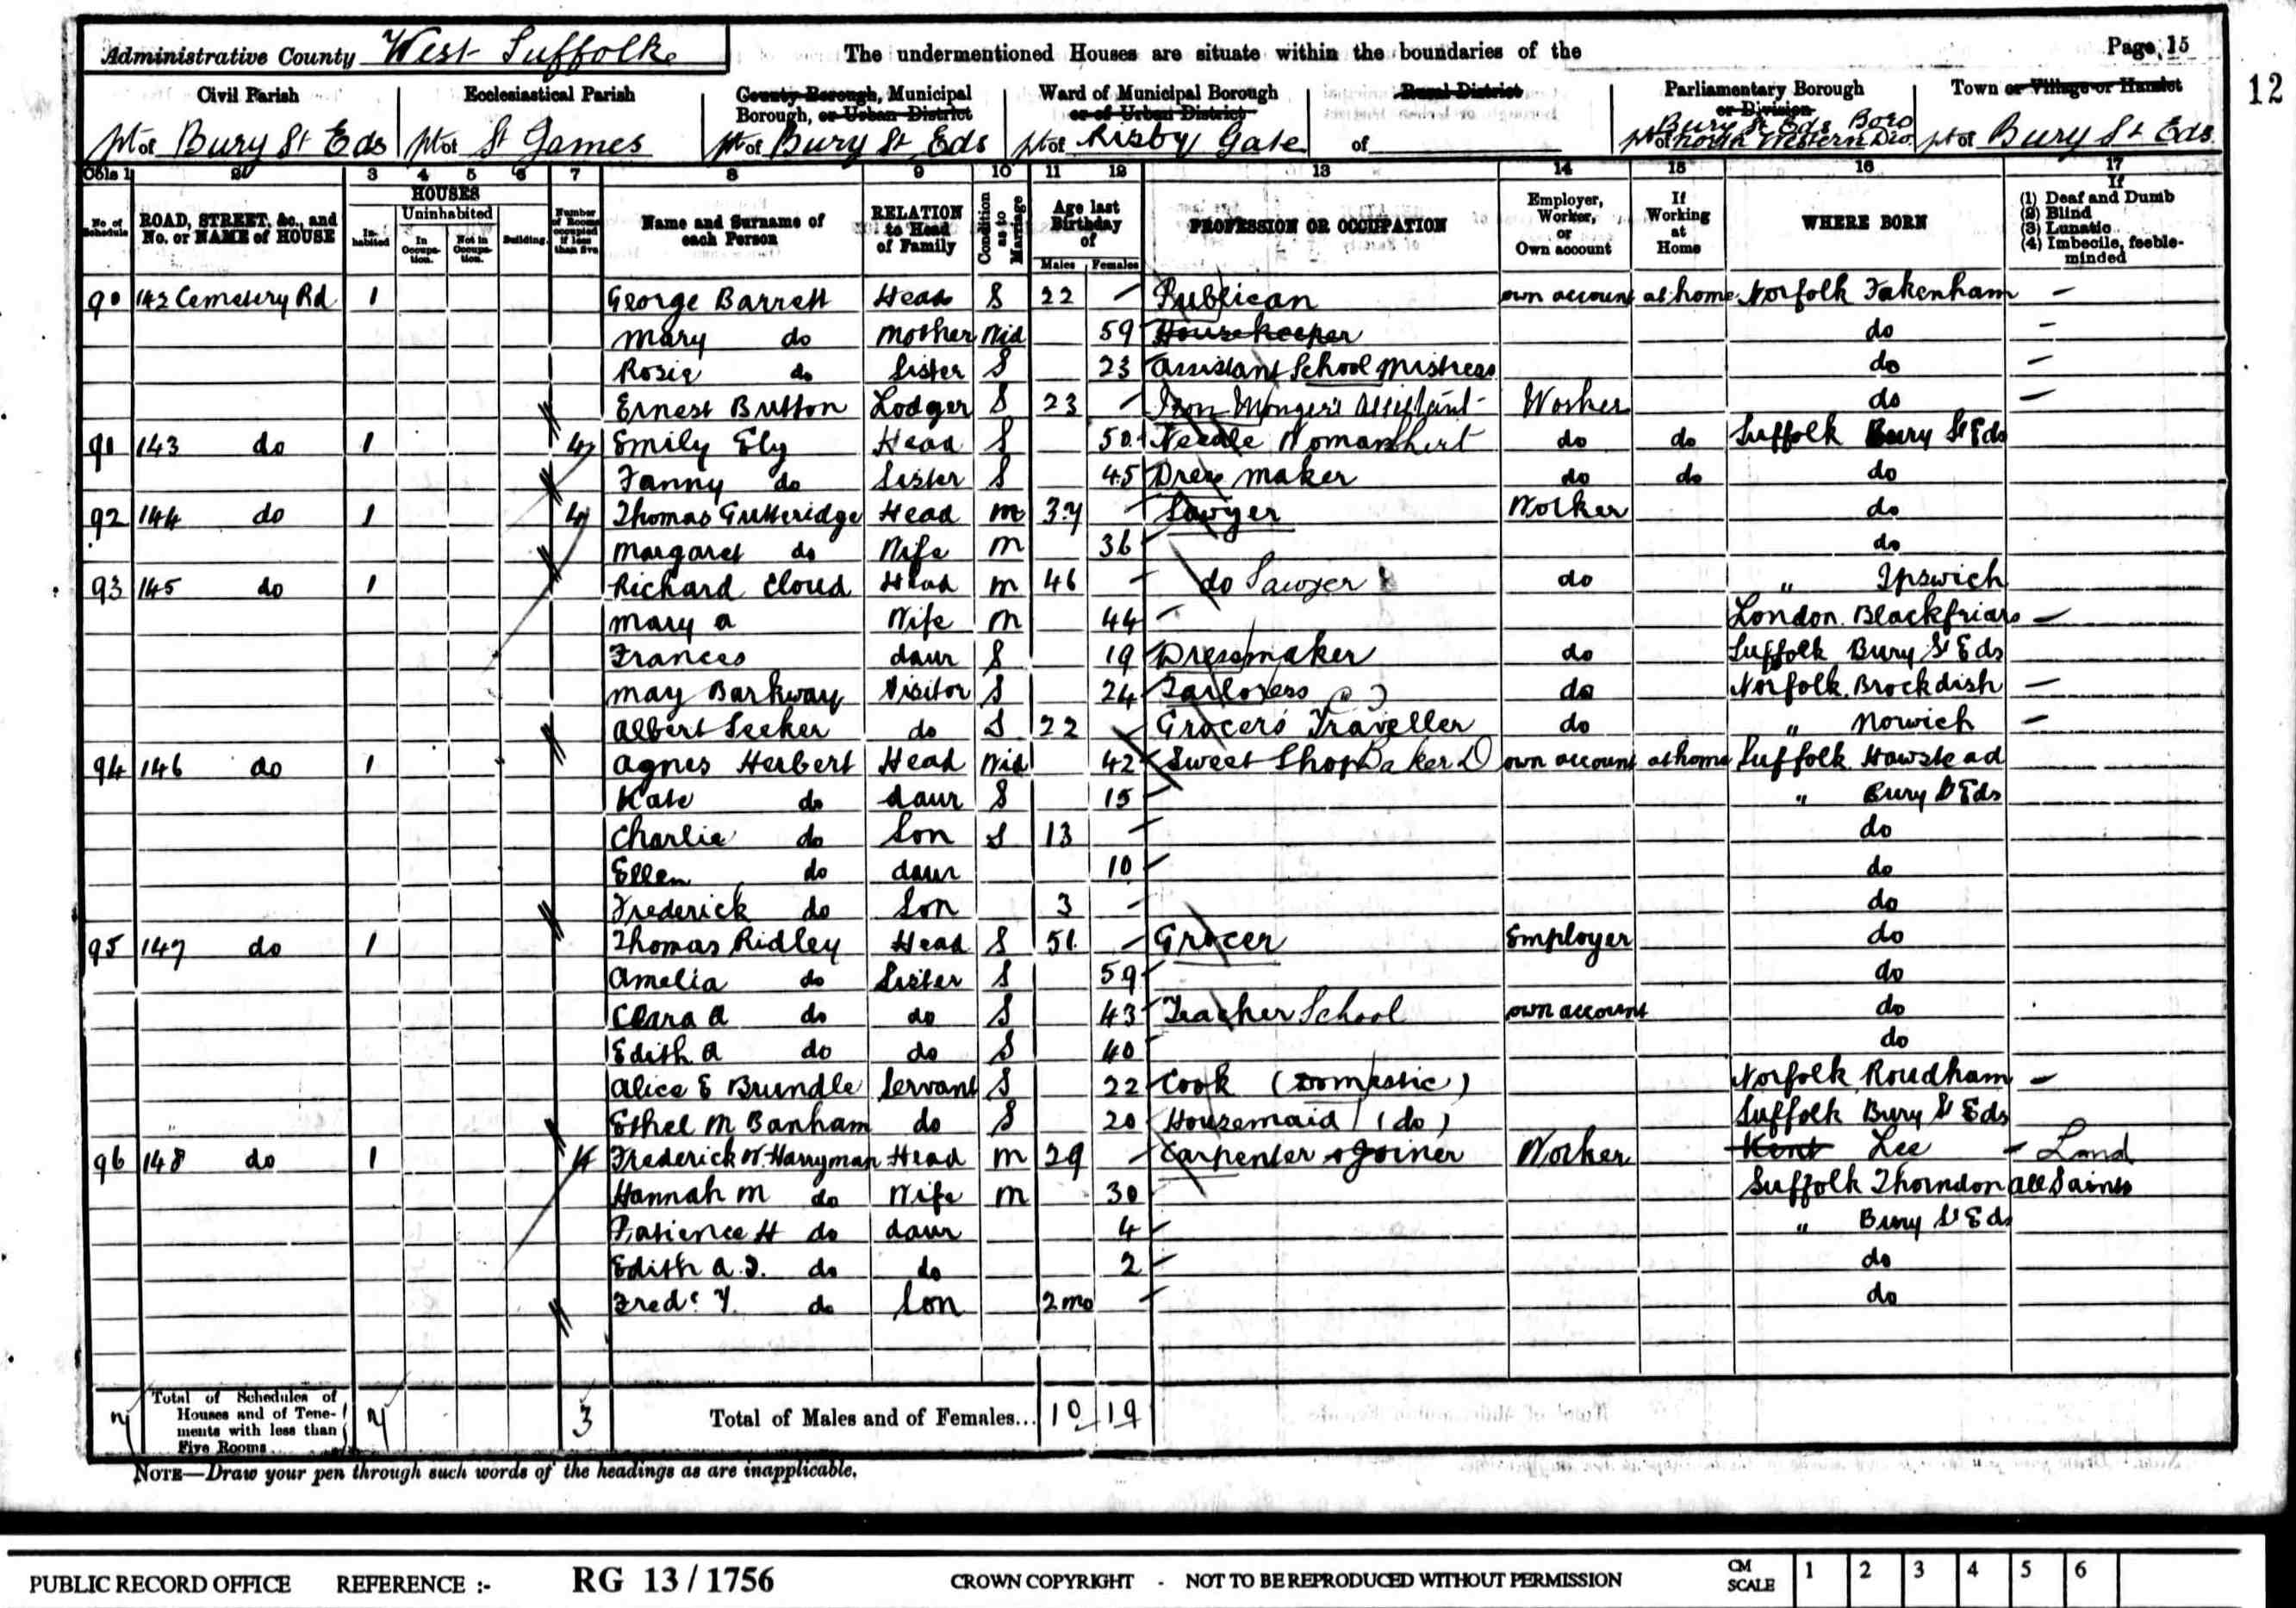 Administrative County West Suffolk The undermentioned Houses are situate within the boundaries of the Page 15
12
Civil Parish Ecclesiastical Parish County Borough, Municipal Borough, or Urban District Ward of Municipal Borough or of Urban District Rural District Parliamentary Borough or Division Town or Village or Hamlet
pt of Bury St Eds pt of St James pt of Bury St Eds pt of Risby Gate of pt of Bury St Eds Boro North Western Div. pt of Bury St Eds
Cols 1 2 3 4 5 6 7 8 9 10 11 12 13 14 15 16 17
No. of Schedule ROAD, STREET, &c., and No. or NAME of HOUSE HOUSES Inhabited Uninhabited In Occupation. Not in Occupation. Building. Number of Rooms occupied if less than five Name and Surname of each Person RELATION to Head of Family Condition as to Marriage Age last Birthday of Males Females PROFESSION OR OCCUPATION Employer, Worker, or Own account If Working at Home WHERE BORN If (1) Deaf and Dumb (2) Blind (3) Lunatic (4) Imbecile, feeble-minded
90 142 Cemetery Rd 1 George Barrett Head S 22 – Publican own account at home Norfolk Fakenham –
Mary do Mother Wid 59 Housekeeper do –
Rosie do Sister S 23 Assistant School Mistress do –
Ernest Button Lodger S 23 – Iron Monger's Assistant Worker do –
91 143 do 1 4 Emily Ely Head S 50 Needle Woman Shirt do do Suffolk Bury St Eds
Fanny do Sister S 45 Dress maker do do do
92 144 do 1 4 Thomas Gutteridge Head M 37 – Sawyer Worker do
Margaret do Wife M 36 do
93 145 do 1 Richard Cloud Head M 46 – do Sawyer do " Ipswich
Mary A Wife M 44 – London Blackfriars –
Frances daur S 19 Dressmaker do Suffolk Bury St Eds
May Barkway Visitor S 24 Tailoress do Norfolk Brockdish –
Albert Seeker do S 22 – Grocers Traveller do " Norwich –
94 146 do 1 Agnes Herbert Head Wid 42 Sweet Shop Baker D own account at home Suffolk Hawstead
Kate do daur S 15 – " Bury St Eds
Charlie do Son S 13 – do
Ellen do daur 10 – do
Frederick do Son 3 – do
95 147 do 1 Thomas Ridley Head S 51 – Grocer Employer do
Amelia do Sister S 59 – do
Clara A do do S 43 Teacher School own account do
Edith A do do S 40 do
Alice E Brundle Servant S 22 Cook (Domestic) Norfolk Roudham –
Ethel M Banham do S 20 Housemaid (do) Suffolk Bury St Eds
96 148 do 1 4 Frederick W. Harryman Head M 29 – Carpenter & Joiner Worker Kent Lee – Lond
Hannah M do Wife M 30 Suffolk Thorndon All Saints
Patience H do daur 4 – " Bury St Eds
Edith A. J. do do 2 – do
Fredc Y. do Son 2 mo – do
7 Total of Schedules of Houses and of Tenements with less than Five Rooms 7 3 Total of Males and of Females... 10 19
NOTE—Draw your pen through such words of the headings as are inapplicable.
PUBLIC RECORD OFFICE REFERENCE :- RG 13 / 1756 CROWN COPYRIGHT - NOT TO BE REPRODUCED WITHOUT PERMISSION CM SCALE 1 2 3 4 5 6